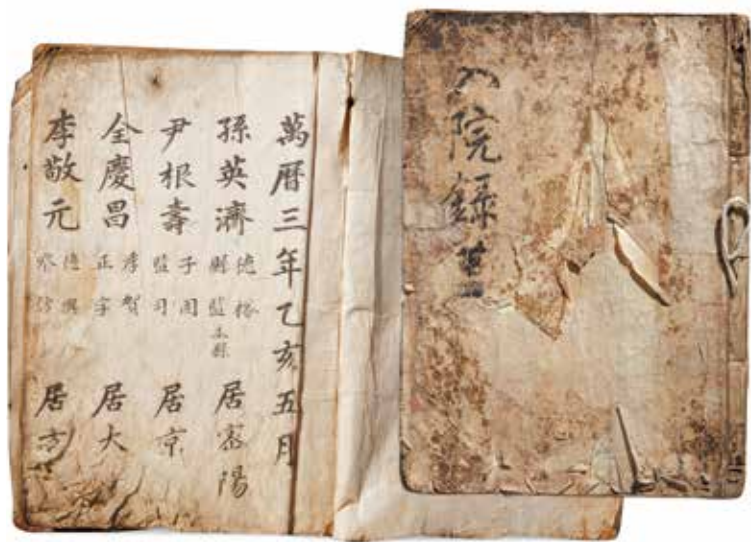 入院錄
萬曆三年乙亥五月
孫英濟 德裕 縣監 居密陽
尹根壽 子固 監司 居京
全慶昌 季賀 正字 居大
李敬元 居